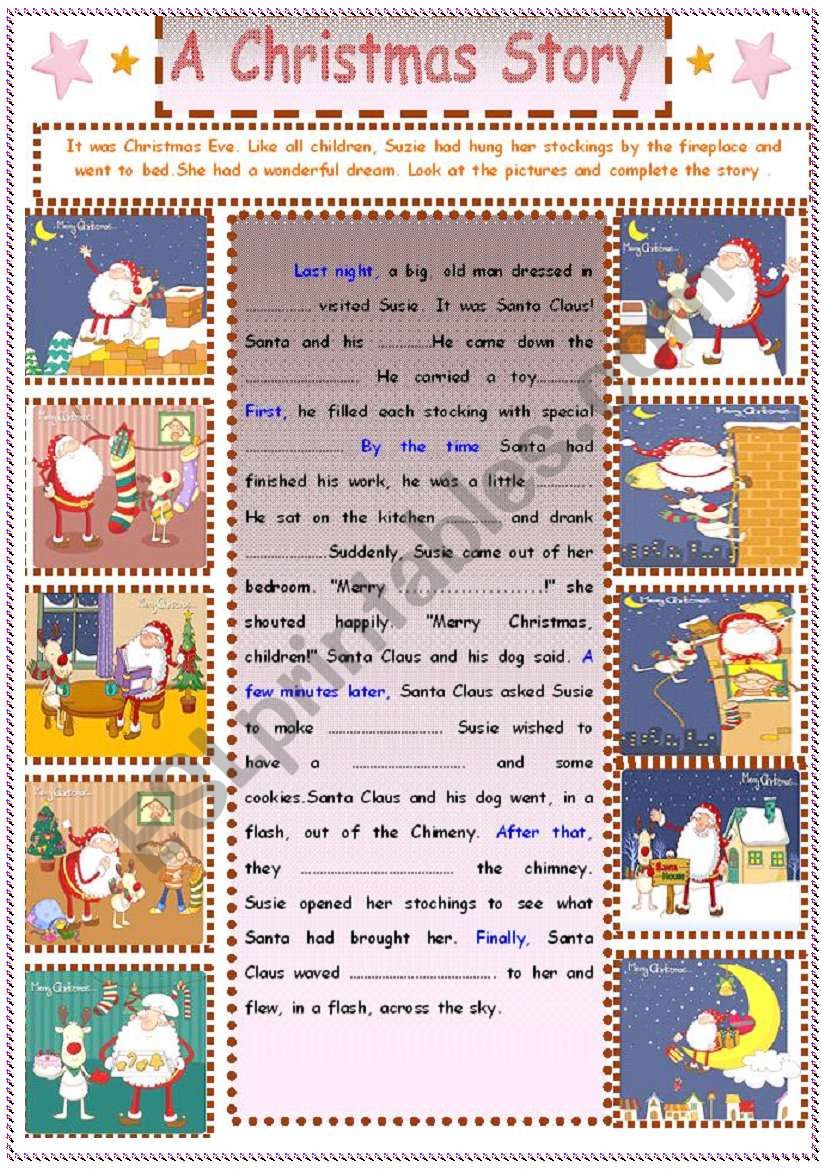 A Christmas Story
It was Christmas Eve. Like all children, Suzie had hung her stockings by the fireplace and
went to bed.She had a wonderful dream. Look at the pictures and complete the story .
Merry Christmas...
Merry Christmas...
Last night, a big old man dressed in
................ visited Susie. It was Santa Claus!
Santa and his .............He came down the
............................ He carried a toy............
First, he filled each stocking with special
........................ By the time Santa had
finished his work, he was a little .............
He sat on the kitchen .............. and drank
....................Suddenly, Susie came out of her
bedroom. "Merry ......................!" she
shouted happily. "Merry Christmas,
children!" Santa Claus and his dog said. A
few minutes later, Santa Claus asked Susie
to make ............................ Susie wished to
have a ............................ and some
cookies.Santa Claus and his dog went, in a
flash, out of the Chimeny. After that,
they ................................ the chimney.
Susie opened her stochings to see what
Santa had brought her. Finally, Santa
Claus waved .................................... to her and
flew, in a flash, across the sky.
Merry Christmas...
Merry Christmas...
Merry Christmas...
Merry Christmas...
Merry Christmas...
Merry Christmas...
Santa
House
Merry Christmas...
Merry Christmas...
ESLprintables.com